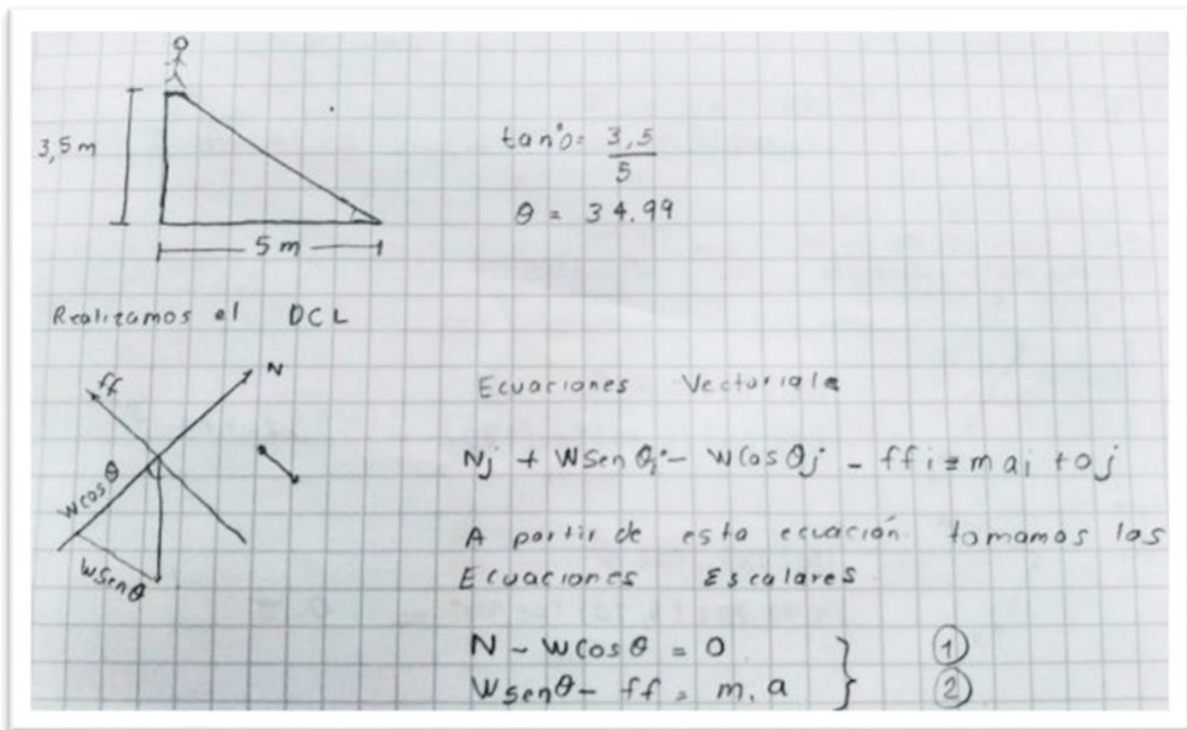 3,5 m
5 m
tan θ = 3,5
5
θ = 34.99
Realizamos el DCL
ff
N
W cos θ
W Sen θ
Ecuaciones Vectoriale
Nj + W Sen θi - W Cos θj - ff i = m a i + o j
A partir de esta ecuación tomamos las
Ecuaciones Escalares
N - W Cos θ = 0 } ①
W sen θ - ff = m . a } ②